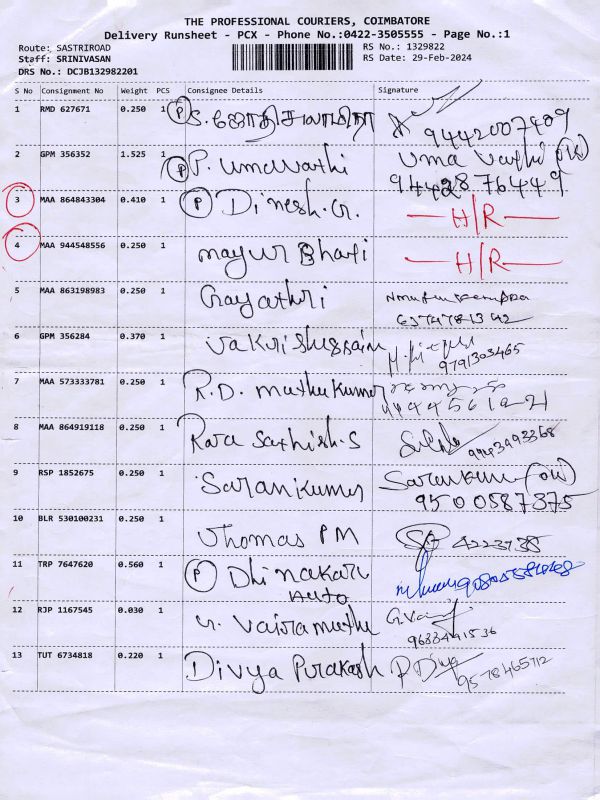 THE PROFESSIONAL COURIERS, COIMBATORE
Delivery Runsheet - PCX - Phone No.:0422-3505555 - Page No.:1
Route: SASTRIROAD RS No.: 1329822
Staff: SRINIVASAN RS Date: 29-Feb-2024
DRS No.: DCJB132982201
S No Consignment No Weight PCS Consignee Details Signature
1 RMD 627671 0.250 1 P S. ஜோதி
9442007409
2 GPM 356352 1.525 1 P P. Umavathi Uma Vathi
9442876449
3 MAA 864843304 0.410 1 P Dinesh.G. H/R
4 MAA 944548556 0.250 1 mayur Bhati H/R
5 MAA 863198983 0.250 1 Gayathri
6374781342
6 GPM 356284 0.370 1 Jakrishussain
9791303465
7 MAA 573333781 0.250 1 R.D. muthukumar
8 MAA 864919118 0.250 1 Rara Sathish.S
9943993368
9 RSP 1852675 0.250 1 Sarankumar Sarankumar
9500587375
10 BLR 530100231 0.250 1 Thomas PM 4223738
11 TRP 7647620 0.560 1 P Dhinakaran
Auto
12 RJP 1167545 0.030 1 Vairamuthu G.Vai
9688491536
13 TUT 6734818 0.220 1 Divya Purakash P Divya
9578465712